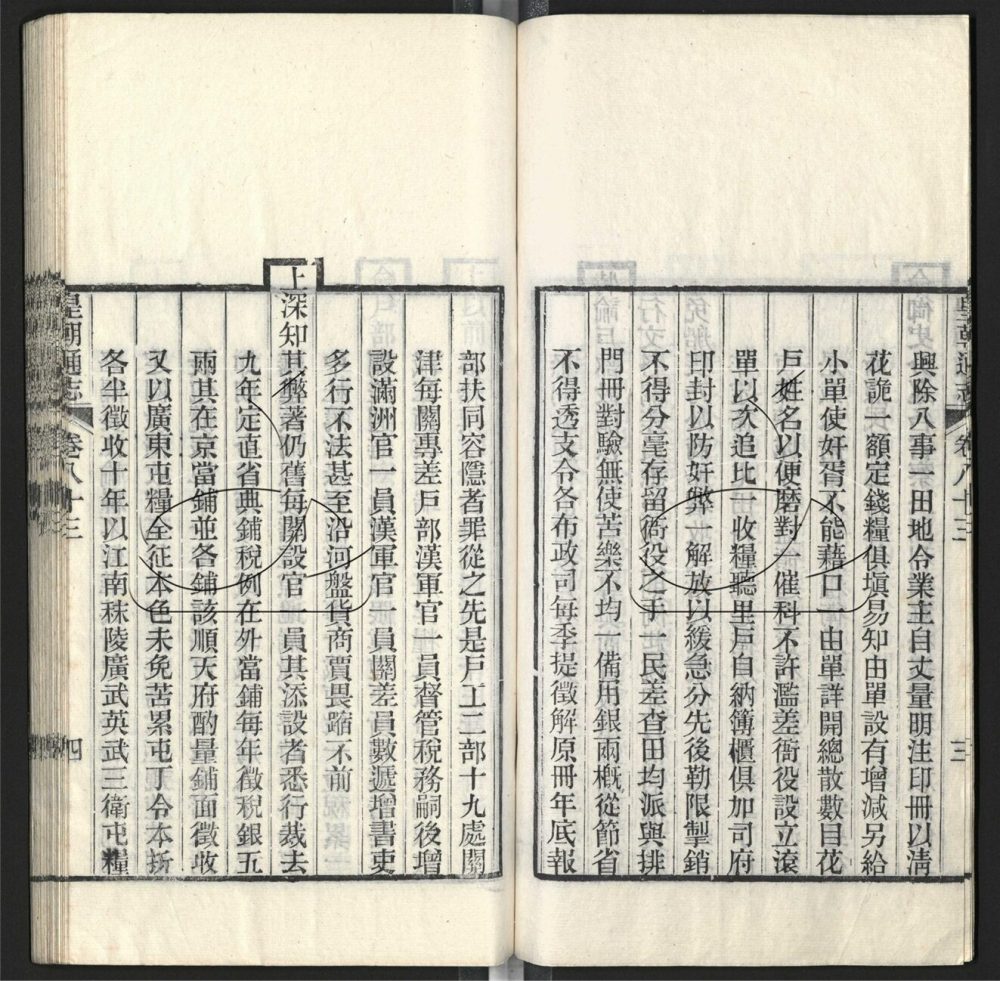 興除八事一田地令業主自丈量明注印冊以清
花詭一額定錢糧俱塡易知由單設有增減另給
小單使奸胥不能藉口一由單詳開總散數目花
戶姓名以便磨對一催科不許濫差衙役設立滾
單以次追比一收糧聽里戶自納簿櫃俱加司府
印封以防奸弊一解放以緩急分先後勒限掣銷
不得分毫存留衙役之手一民差查田均派與排
門冊對驗無使苦樂不均一備用銀兩槪從節省
不得透支令各布政司每季提徵解原冊年底報
皇朝通志 卷八十三 三
部扶同容隱者罪從之先是戶工二部十九處關
津每關專差戶部漢軍官一員督管稅務嗣後增
設滿洲官一員漢軍官一員關差員數遞增書吏
多行不法甚至沿河盤貨商賈畏縮不前
上深知其弊著仍舊每關設官一員其添設者悉行裁去
九年定直省典鋪稅例在外當鋪每年徵稅銀五
兩其在京當鋪並各鋪該順天府酌量鋪面徵收
又以廣東屯糧全征本色未免苦累屯丁令本折
各半徵收十年以江南秣陵廣武英武三衛屯糧
皇朝通志 卷八十三 四